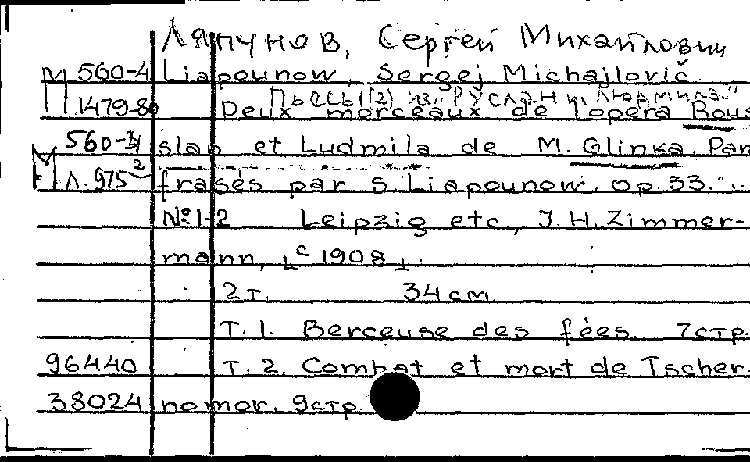 Ляпунов, Сергей Михайлович
М 560-4 Liapounow, Sergej Michajlovič
Пьесы (2) из "Руслан и Людмила"
1479-80 Deux morceaux de l'opera Rous
560-3/4 slan et Ludmila de M. Glinka. Par
Л.975² frasés par S. Liapounow. Op. 33. ...
№ 1-2 Leipzig etc, J. H. Zimmer-
mann, [c 1908].
2т. 34 см
Т. 1. Berceuse des fées 7стр.
96440 Т. 2. Combat et mort de Tscher.
38024 nomor. 9стр